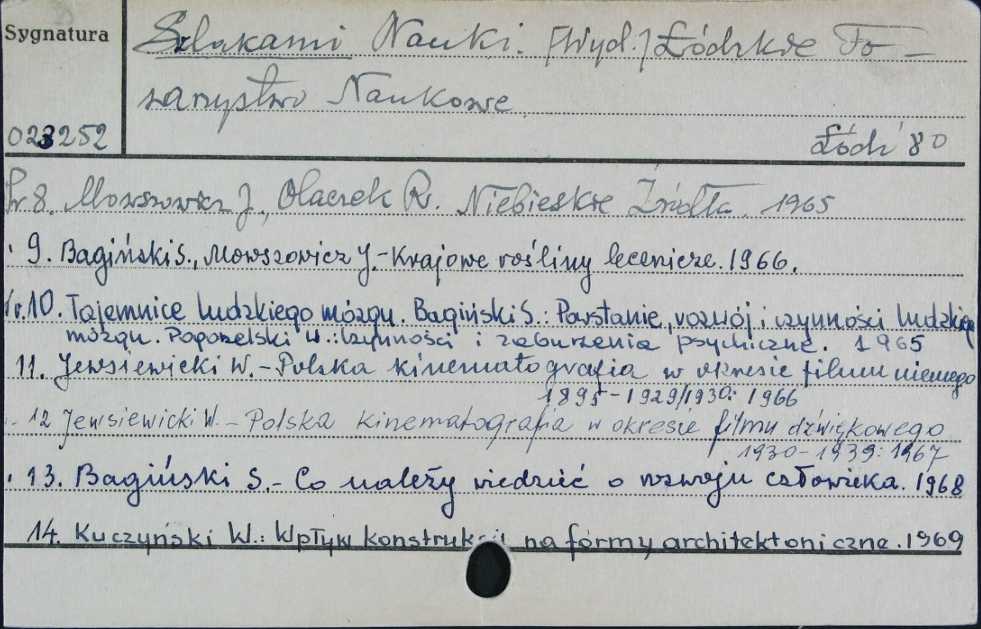 Sygnatura
Szlakami Nauki. [Wyd.] Łódzkie To-
warzystwo Naukowe
023252
Łódź 80
Nr 8. Mowszowicz J., Olaczek R. Niebieskie Źródła. 1965
9. Bagiński S., Mowszowicz J.-Krajowe rośliny lecznicze. 1966.
Nr. 10. Tajemnice ludzkiego mózgu. Bagiński S.: Powstanie, rozwój i czynności ludzkiego
mózgu. Poporzelski W.: Czynności i zaburzenia psychiczne. 1965
11. Jewsiewicki W.-Polska kinematografia w okresie filmu niemego
1895-1929/1930: 1966
12 Jewsiewicki W.-Polska kinematografia w okresie filmu dźwiękowego
1930-1939: 1967
13. Bagiński S.- Co należy wiedzieć o rozwoju człowieka. 1968
14. Kuczyński W.: Wpływ konstrukcji na formy architektoniczne. 1969